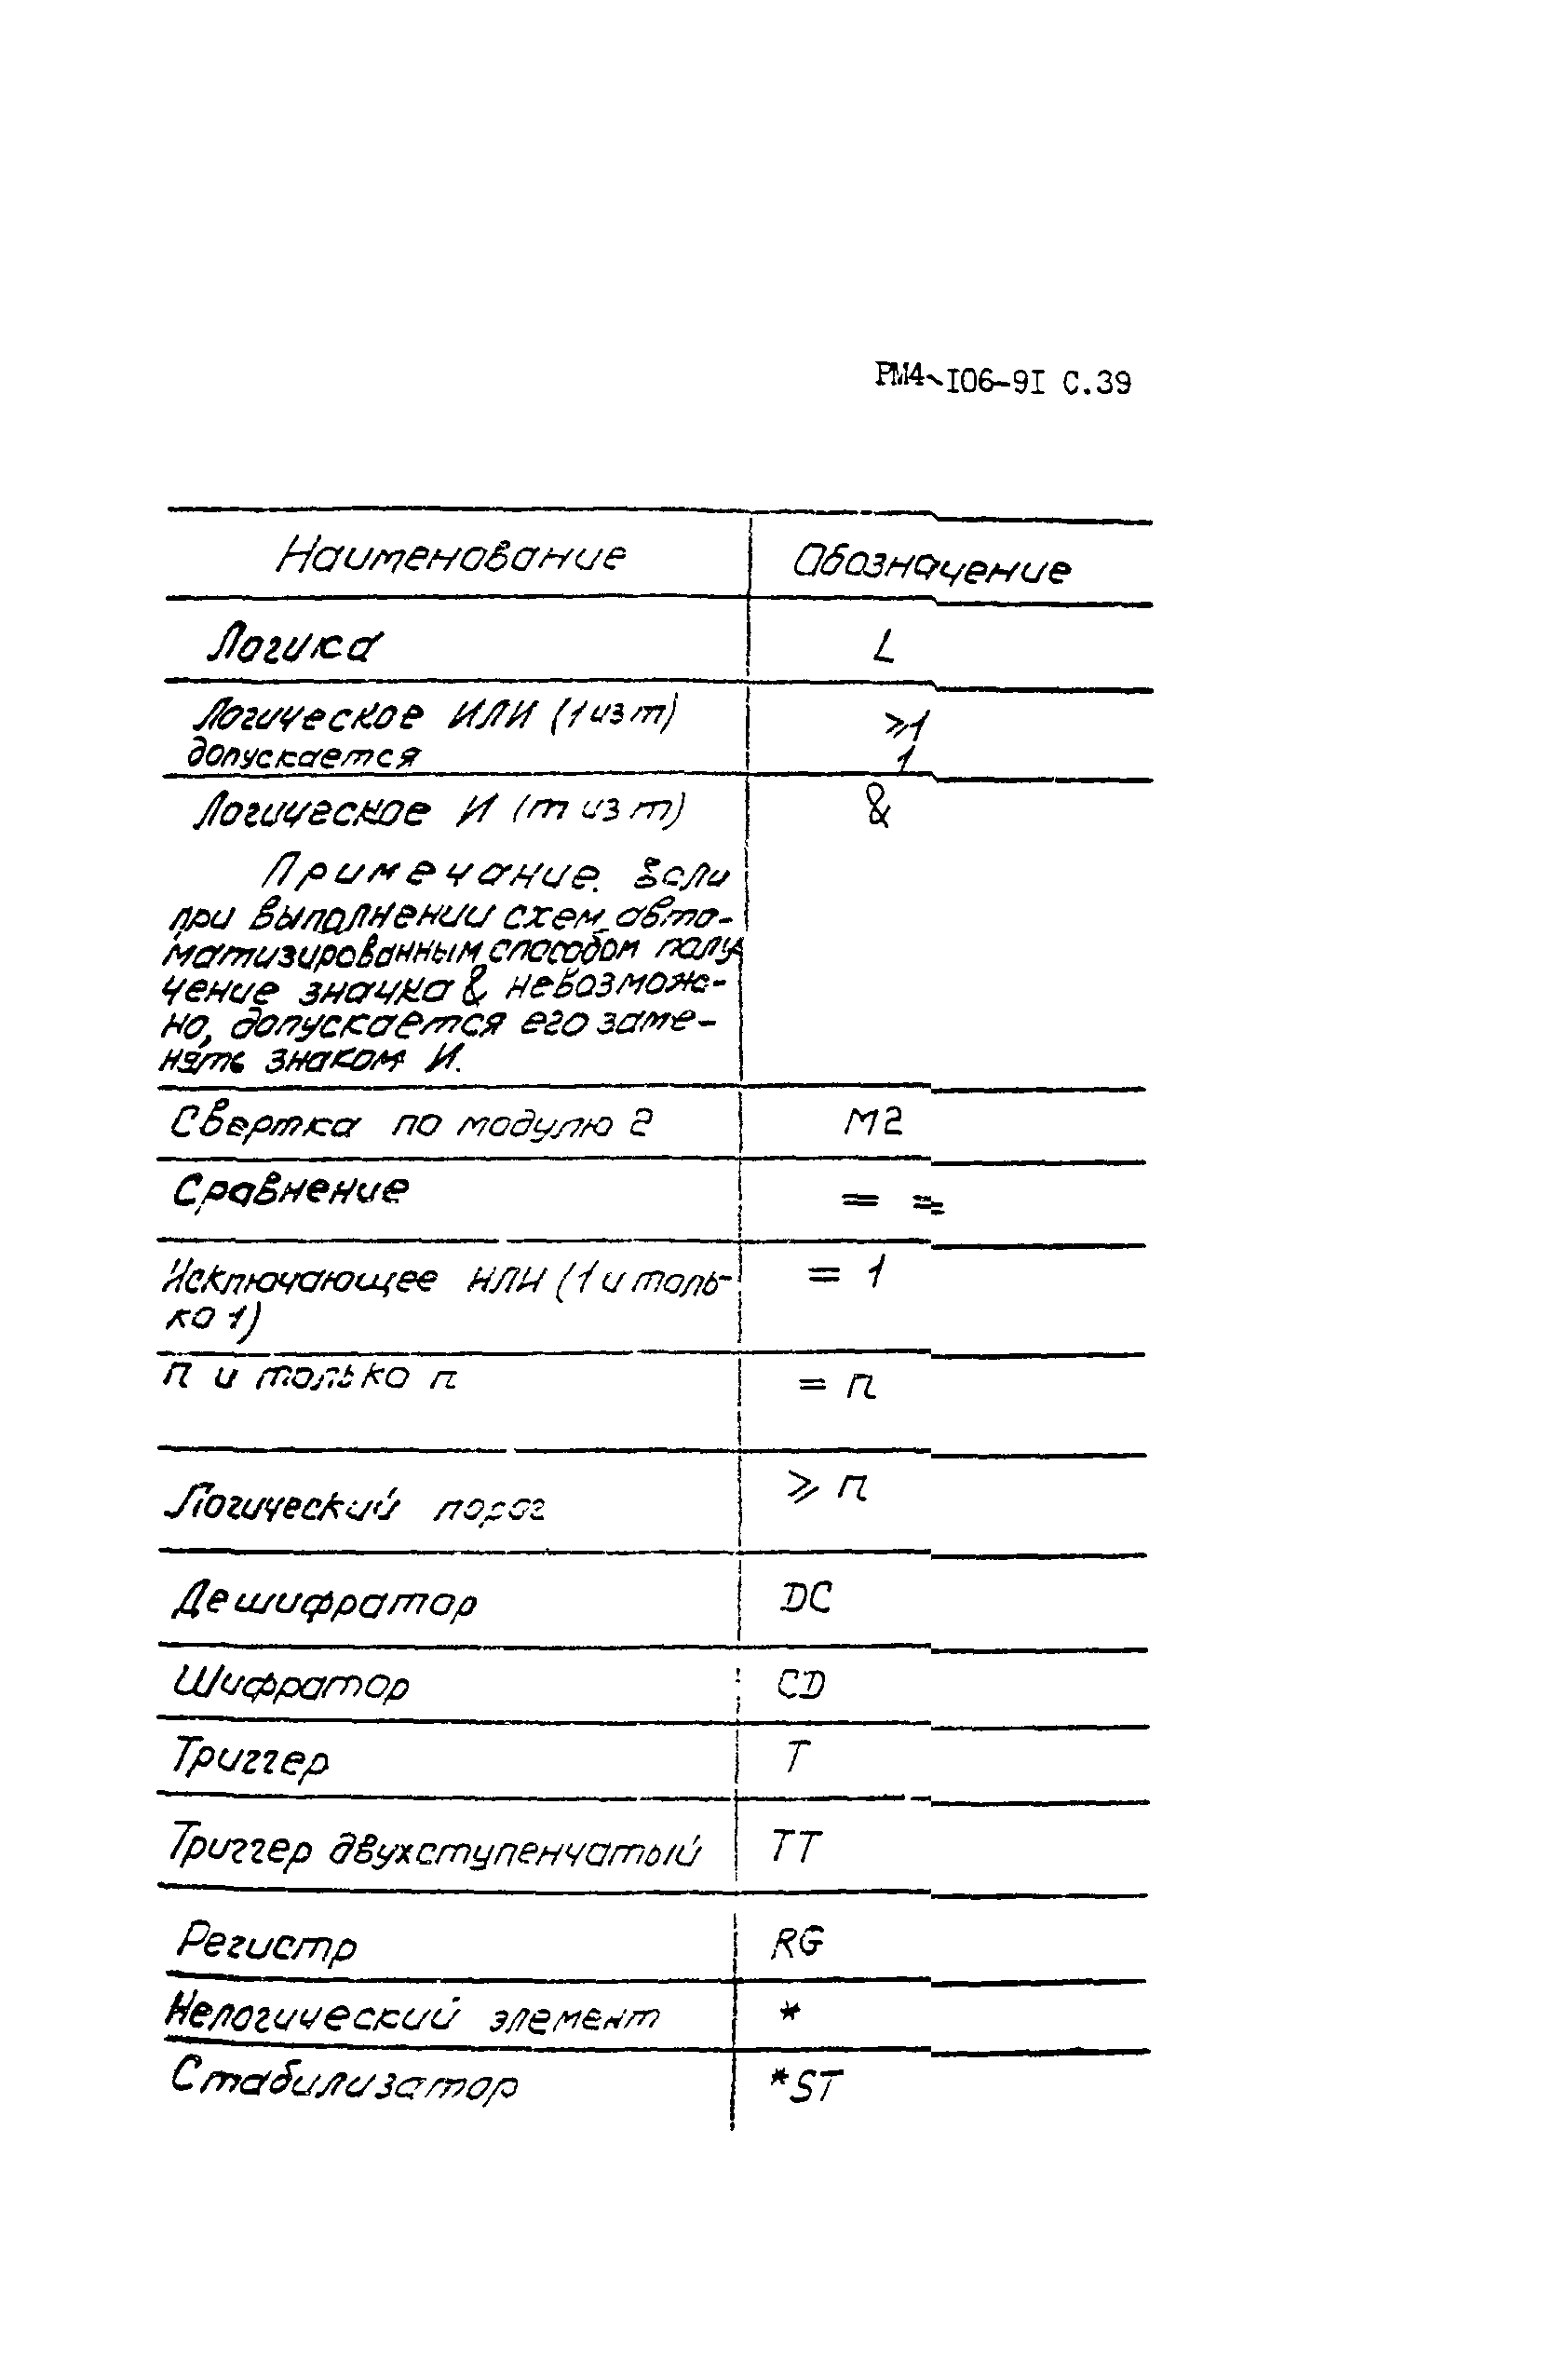 РМ4-106-91 С.39
Наименование Обозначение
Логика L
Логическое ИЛИ (1 из m) ⩾1
допускается 1
Логическое И (m из m) &
Примечание. Если
при выполнении схем авто-
матизированным способом полу-
чение значка & невозмож-
но, допускается его заме-
нять знаком И.
Свертка по модулю 2 М2
Сравнение = =
Исключающее ИЛИ (1 и толь- = 1
ко 1)
n и только n = n
Логический порог ⩾ n
Дешифратор DC
Шифратор CD
Триггер T
Триггер двухступенчатый TT
Регистр RG
Нелогический элемент *
Стабилизатор *ST